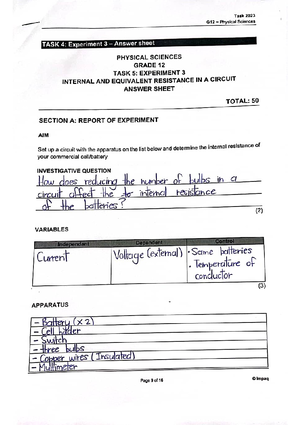 Task 2023
G12 – Physical Sciences
TASK 4: Experiment 3 – Answer sheet
PHYSICAL SCIENCES
GRADE 12
TASK 5: EXPERIMENT 3
INTERNAL AND EQUIVALENT RESISTANCE IN A CIRCUIT
ANSWER SHEET
TOTAL: 50
SECTION A: REPORT OF EXPERIMENT
AIM
Set up a circuit with the apparatus on the list below and determine the internal resistance of
your commercial cell/battery
INVESTIGATIVE QUESTION
How does reducing the number of bulbs in a
circuit affect the internal resistance
of the batteries?
(2)
VARIABLES
Independent Dependent Control
Current Voltage (external) • Same batteries
• Temperature of
conductor
(3)
APPARATUS
– Battery (x 2)
– Cell holder
– Switch
– three bulbs
– Copper wires (Insulated)
– Multimeter
Page 9 of 16
© Impaq